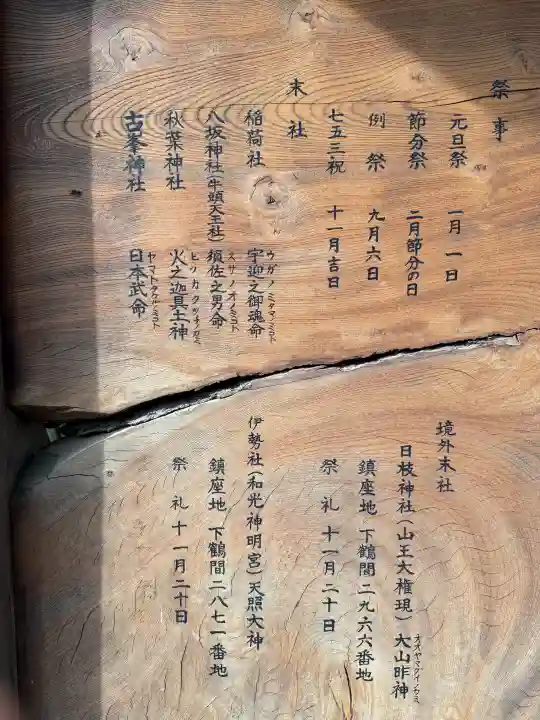 祭事
元旦祭 一月一日
節分祭 二月節分の日
例祭 九月六日
七五三祝 十一月吉日
末社
稲荷社 宇迦之御魂命
ウガノミタマノミコト
八坂神社(牛頭天王社) 須佐之男命
スサノオノミコト
秋葉神社 火之迦具土神
ヒノカグツチノカミ
古峯神社 日本武命
ヤマトタケルノミコト
境外末社
日枝神社(山王大権現) 大山昨神
オオヤマグイノカミ
鎮座地 下鶴間二九六六番地
祭礼 十一月二十日
伊勢社(和光神明宮) 天照大神
鎮座地 下鶴間二八七一番地
祭礼 十一月二十日